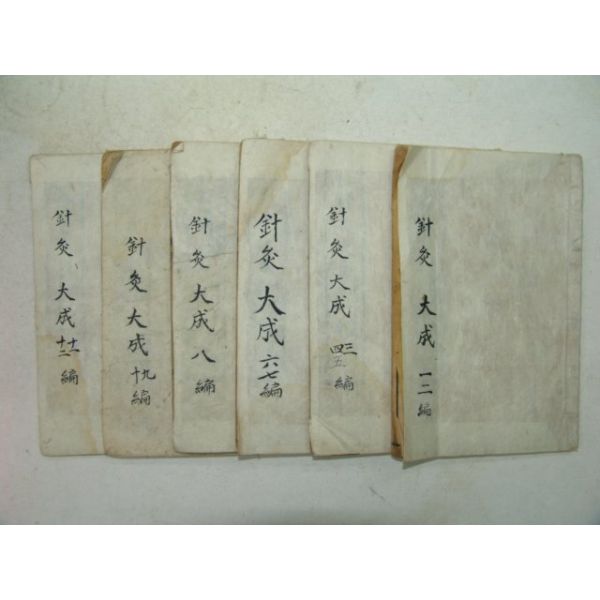 針灸 大成 一二編
針灸 大成 三四五編
針灸 大成 六七編
針灸 大成 八編
針灸 大成 九十編
針灸 大成 十一十二編